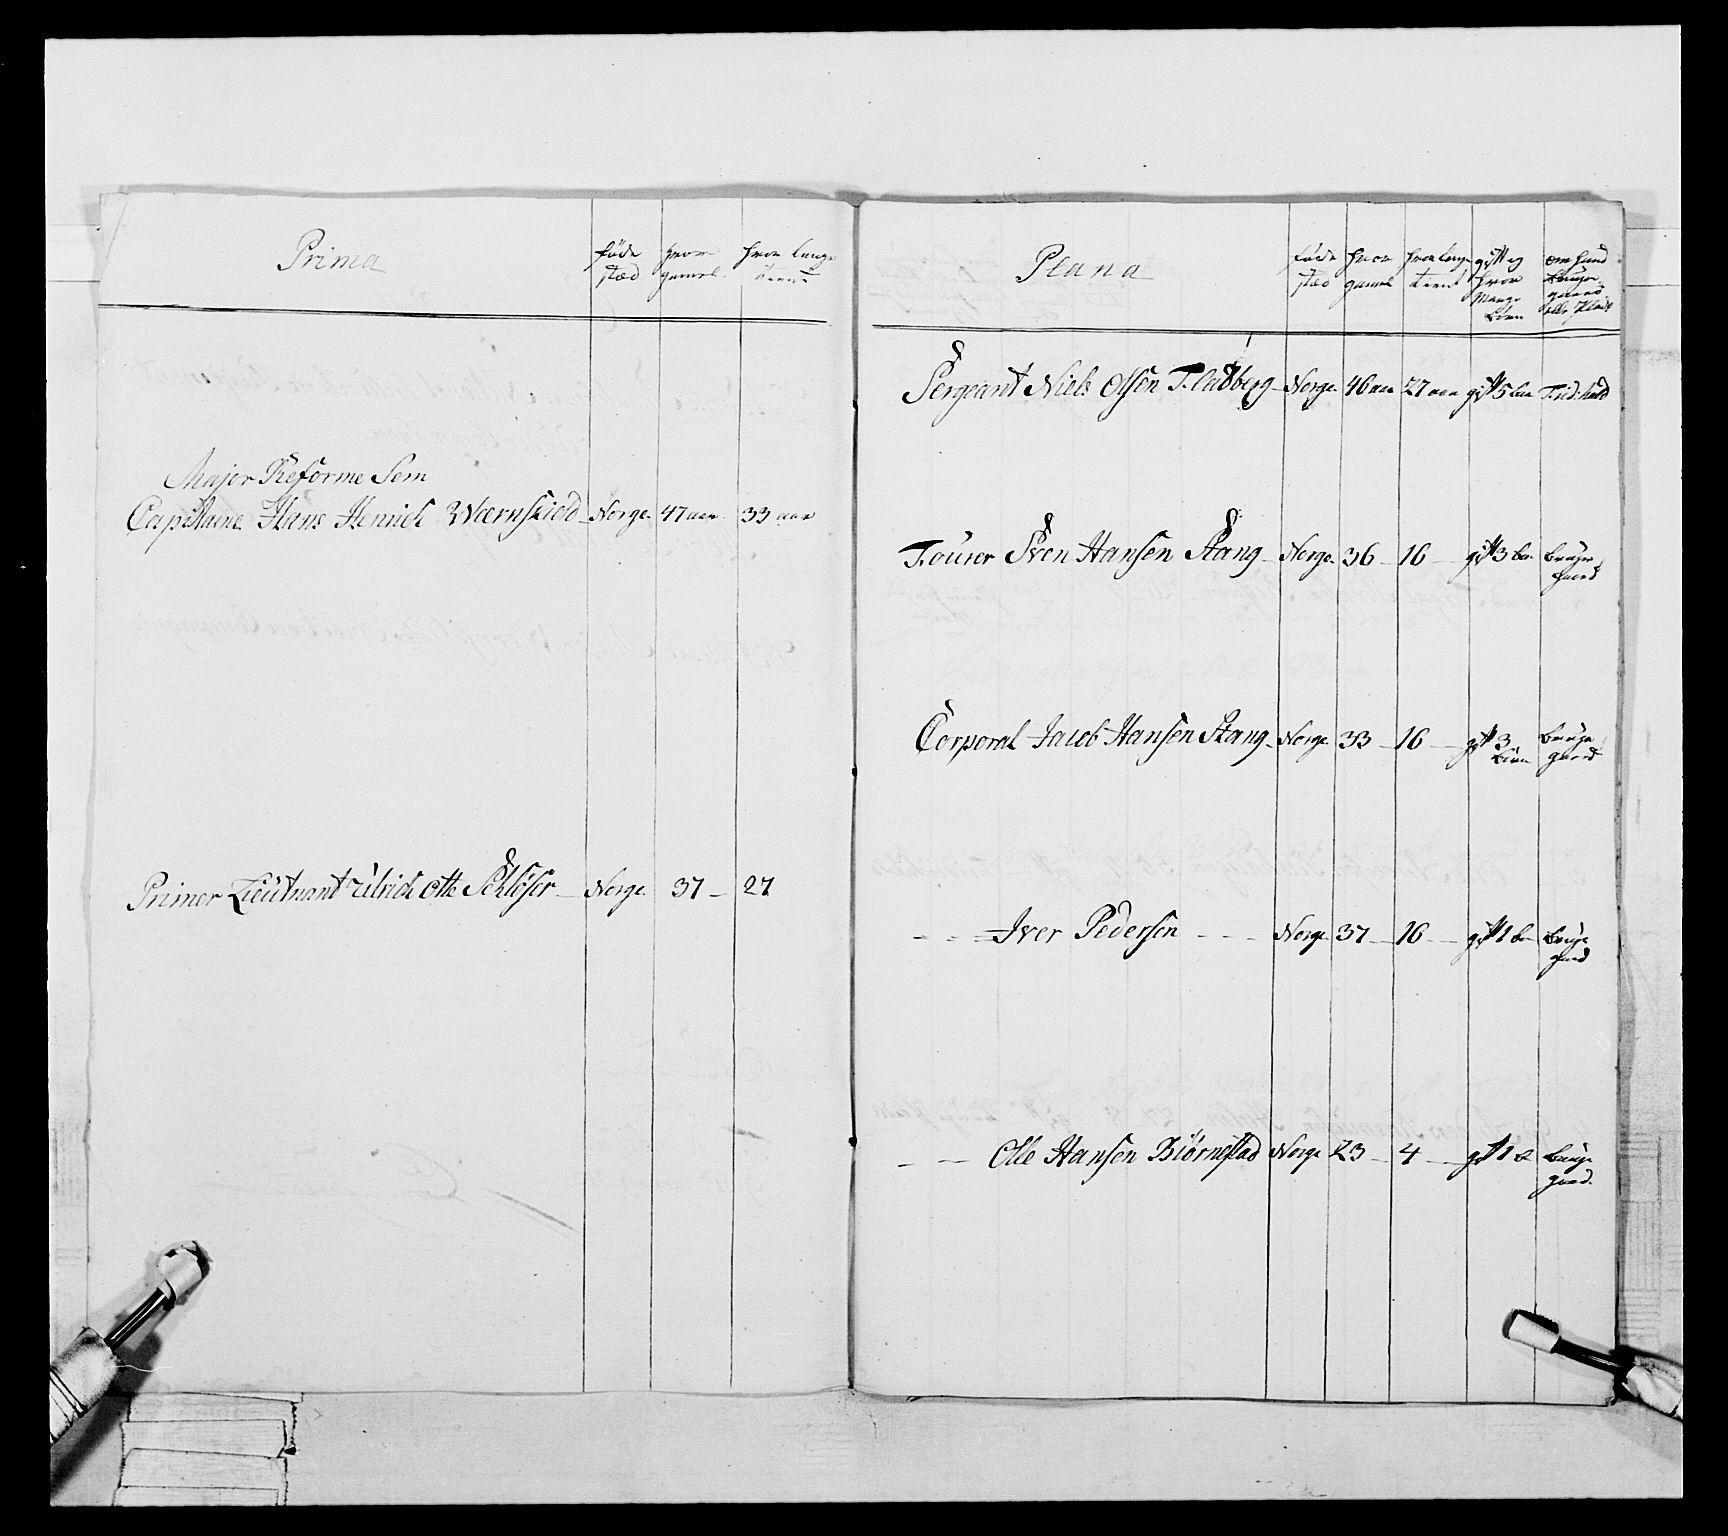 Prima
föde stæd
hvor gamel
hvor lenge tient
Major Reforme Som
Capitaine Hans Henrich Wærnskiold Norge 47 aar 33 aar
Primer Lieutnant Ulrich Otte Schlöser Norge 37 27
Plana
föde stæd
hvor gamel
hvor lenge tient
gift og hvor Mange börn
om hand bruger gaard eller Plads
Sergeant Niels Olsen Norge 46 aar 27 aar gift 5 bn
Fourer Sven Hansen Stang Norge 36 16 gift 3 bn bruger gaard
Corporal Jacob Hansen Stang Norge 33 16 gift 3 börn bruger gaard
Iver Pedersen Norge 37 16 gift 1 bn bruger gaard
Olle Hansen Biørnstad Norge 23 4 gift 1 b bruger gaard